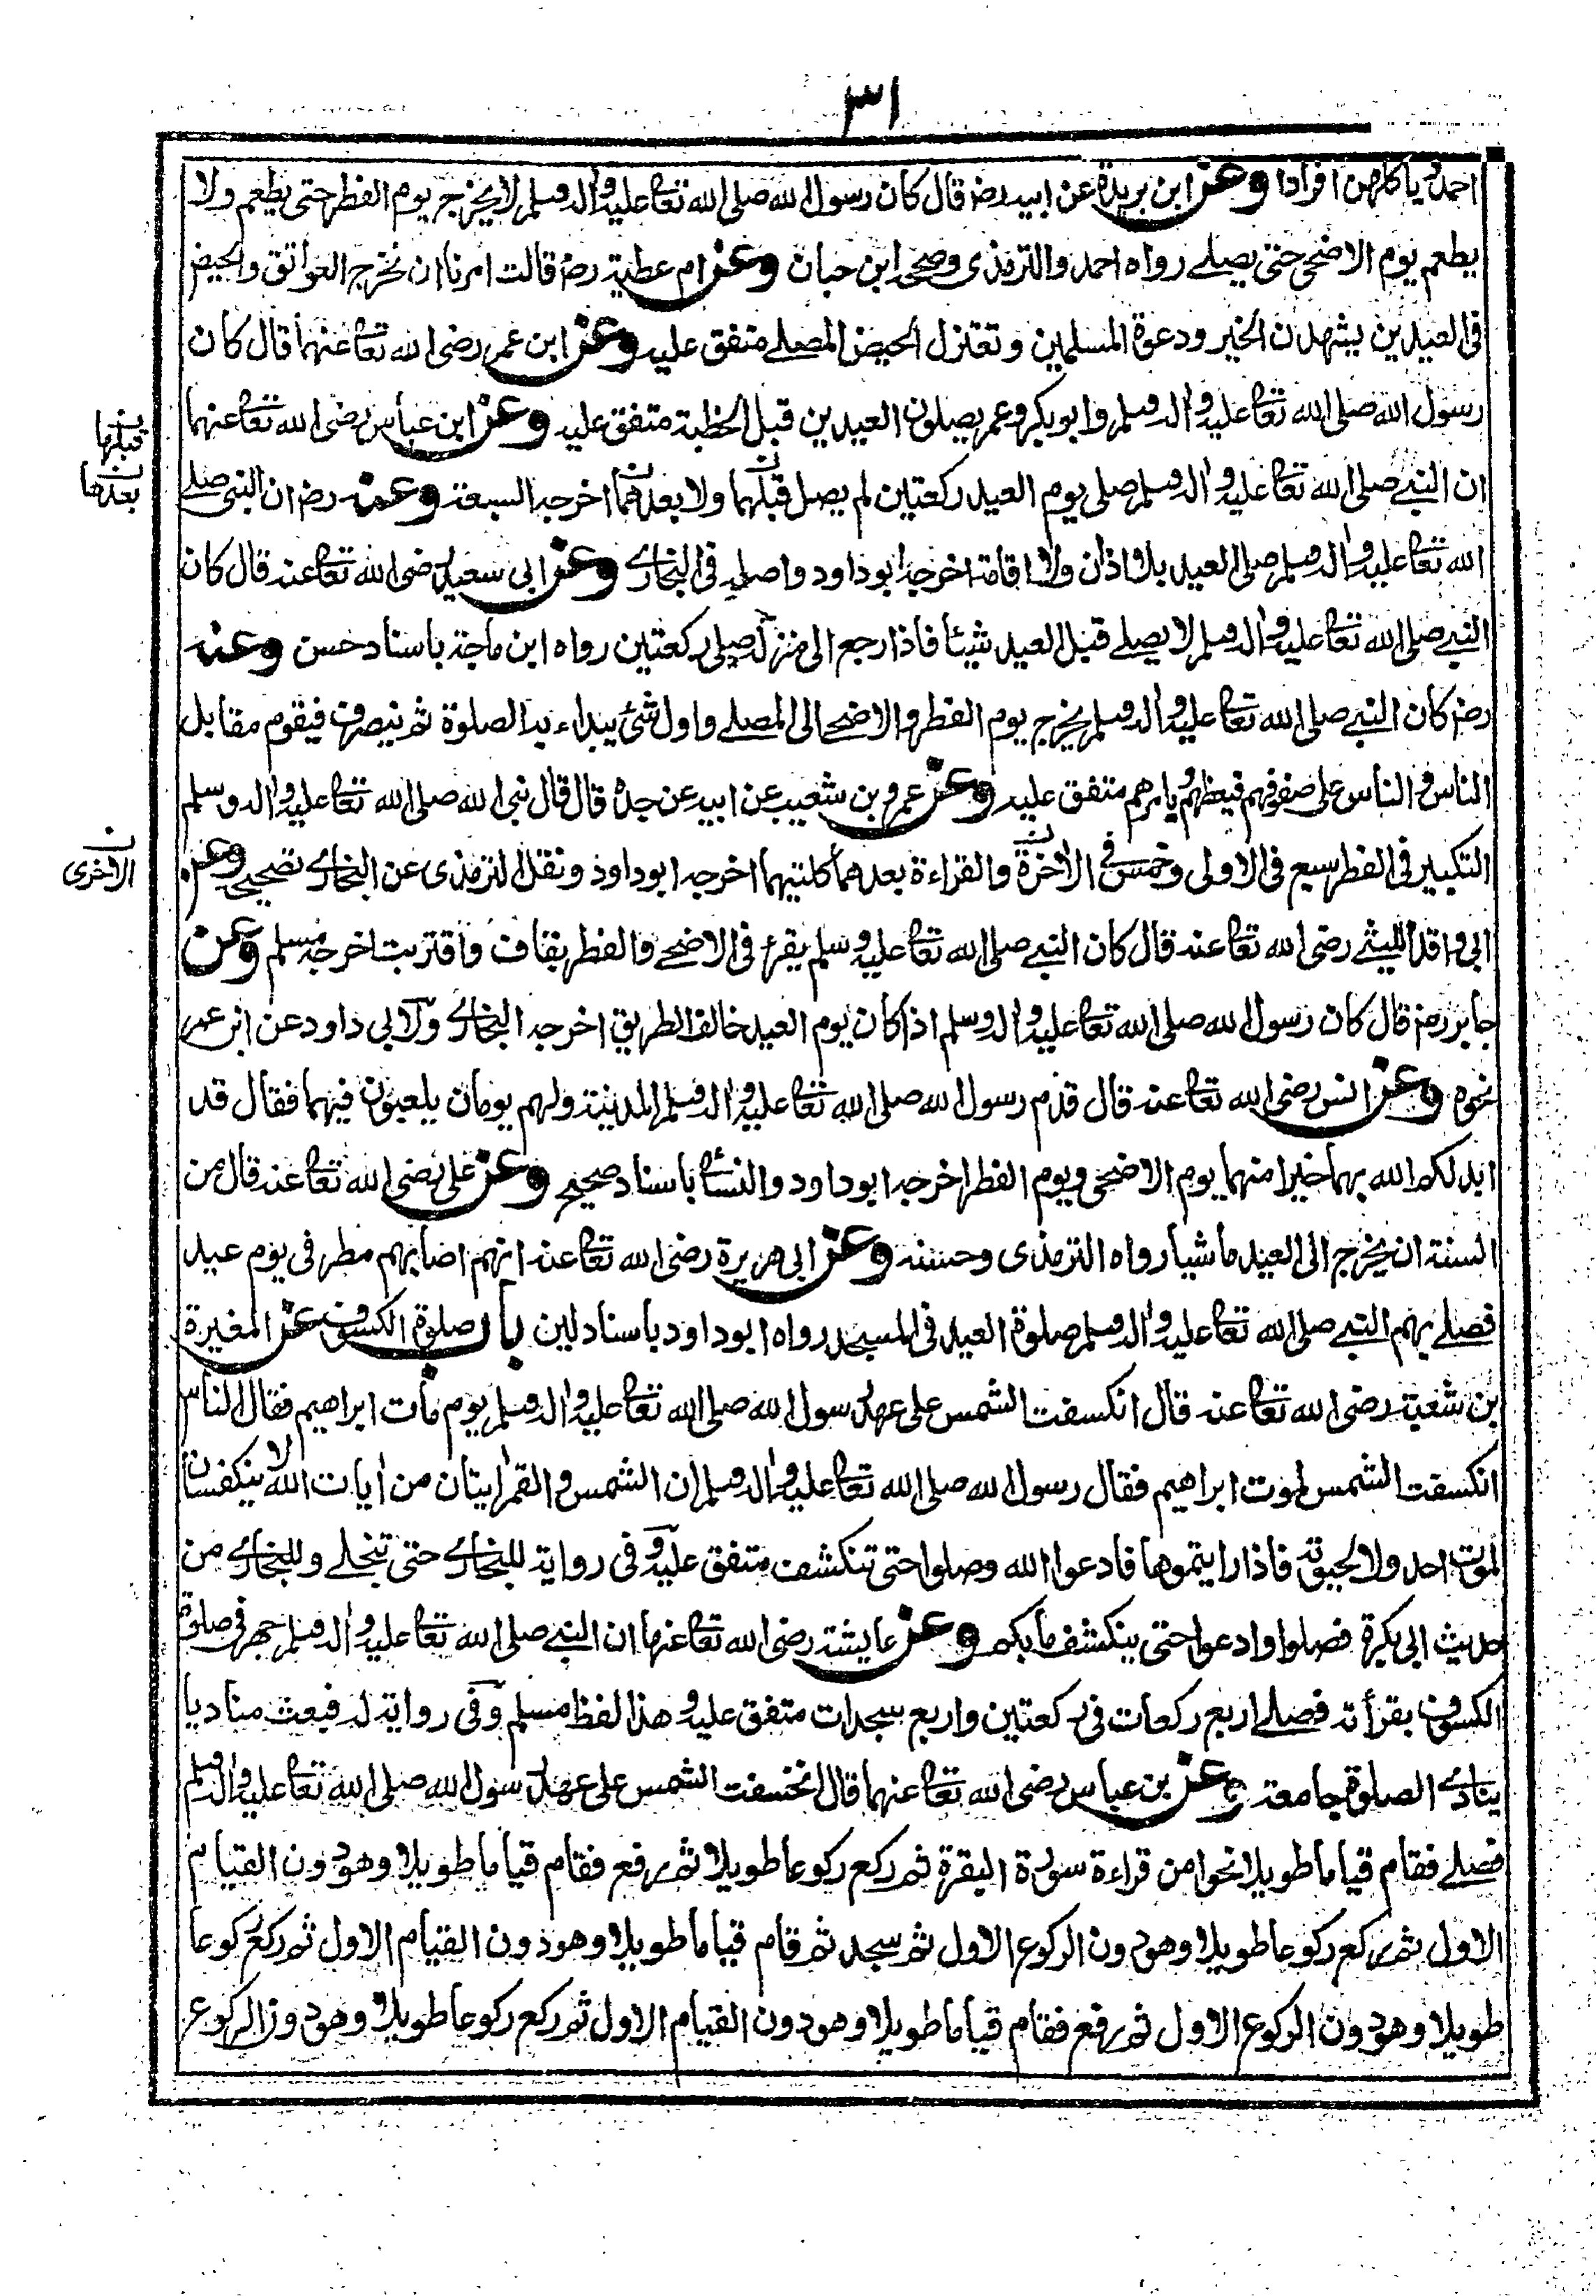 ٣١
احمد ويأكلهن افرادا وعن ابن بريدة عن ابيه رض قال كان رسول الله صلى الله تعا عليه واله وسلم لا يخرج يوم الفطر حتى يطعم ولا
يطعم يوم الاضحى حتى يصلے رواه احمد والترمذى وصحه ابن حبان وعن ام عطية رض قالت امرنا ان نخرج العواتق والحيض
فى العيدين يشهدن الخير ودعوة المسلمين وتعتزل الحيض المصلے متفق عليه وعن ابن عمر رضى الله تعا عنهما قال كان
رسول الله صلى الله تعا عليه واله وسلم وابو بكر وعمر يصلون العيدين قبل الخطبة متفق عليه وعن ابن عباس رضى الله تعا عنهما
ان النبے صلى الله تعا عليه واله وسلم صلى يوم العيد ركعتين لم يصل قبلهما ولا بعدهما اخرجه السبعة وعنه رض ان النبى صلے
الله تعا عليه واله وسلم صلى العيد بلا اذان ولا اقامة اخرجه ابو داود واصله فى البخارے وعن ابى سعيد رضى الله تعا عنه قال كان
النبے صلى الله تعا عليه واله وسلم لا يصلے قبل العيد شيئا فاذا رجع الى منزله صلى ركعتين رواه ابن ماجة باسناد حسن وعنه
رض كان النبے صلى الله تعا عليه واله وسلم يخرج يوم الفطر والاضحے الى المصلے واول شئ يبداء به الصلوة ثم ينصرف فيقوم مقابل
الناس والناس على صفوفهم فيعظهم ويامرهم متفق عليه وعن عمرو بن شعيب عن ابيه عن جده قال قال نبى الله صلى الله تعا عليه واله وسلم
التكبير فى الفطر سبع فى الاولى وخمس فى الاخرة والقراءة بعدهما كلتيهما اخرجه ابو داود ونقل الترمذى عن البخارے تصحيحه وعن
ابى واقد الليثے رضى الله تعا عنه قال كان النبے صلى الله تعا عليه وسلم يقرأ فى الاضحے والفطر بقاف واقتربت اخرجه مسلم وعن
جابر رض قال كان رسول الله صلى الله تعا عليه واله وسلم اذا كان يوم العيد خالف الطريق اخرجه البخارے ولابى داود عن ابن عمر
نحوه وعن انس رضى الله تعا عنه قال قدم رسول الله صلى الله تعا عليه واله وسلم المدينة ولهم يومان يلعبون فيهما فقال قد
ابدلكم الله بهما خيرا منهما يوم الاضحى ويوم الفطر اخرجه ابو داود والنسأى باسناد صحيح وعن على رضى الله تعا عنه قال من
السنة ان يخرج الى العيد ماشيا رواه الترمذى وحسنه وعن ابى هريرة رضى الله تعا عنه انهم اصابهم مطر فى يوم عيد
فصلے بهم النبے صلى الله تعا عليه واله وسلم صلوة العيد فى المسجد رواه ابو داود باسناد لين باب صلوة الكسوف عن المغيرة
بن شعبة رضى الله تعا عنه قال انكسفت الشمس على عهد رسول الله صلى الله تعا عليه واله وسلم يوم مات ابراهيم فقال الناس
انكسفت الشمس لموت ابراهيم فقال رسول الله صلى الله تعا عليه واله وسلم ان الشمس والقمر ايتان من ايات الله لا ينكفسان
لموت احد ولا لحيوته فاذا رايتموها فادعوا الله وصلوا حتى تنكشف متفق عليه وفى رواية للبخارے حتى تنجلے وللبخارے من
حديث ابى بكرة فصلوا وادعوا حتى ينكشف ما بكم وعن عايشة رضى الله تعا عنها ان النبے صلى الله تعا عليه واله وسلم جهر فى صلوة
الكسوف بقرأته فصلے اربع ركعات فى ركعتين واربع سجدات متفق عليه وهذا لفظ مسلم وفى رواية له فبعث مناديا
ينادے الصلوة جامعة وعن بن عباس رضى الله تعا عنهما قال انخسفت الشمس على عهد رسول الله صلى الله تعا عليه واله وسلم
فصلے فقام قياما طويلا نحوا من قراءة سورة البقرة ثم ركع ركوعا طويلا ثم رفع فقام قياما طويلا وهو دون القيام
الاول ثم ركع ركوعا طويلا وهو دون الركوع الاول ثم سجد ثم قام قياما طويلا وهو دون القيام الاول ثم ركع ركوعا
طويلا وهو دون الركوع الاول ثم رفع فقام قياما طويلا وهو دون القيام الاول ثم ركع ركوعا طويلا وهو دون الركوع
قبلها
بعدها
الاخرى